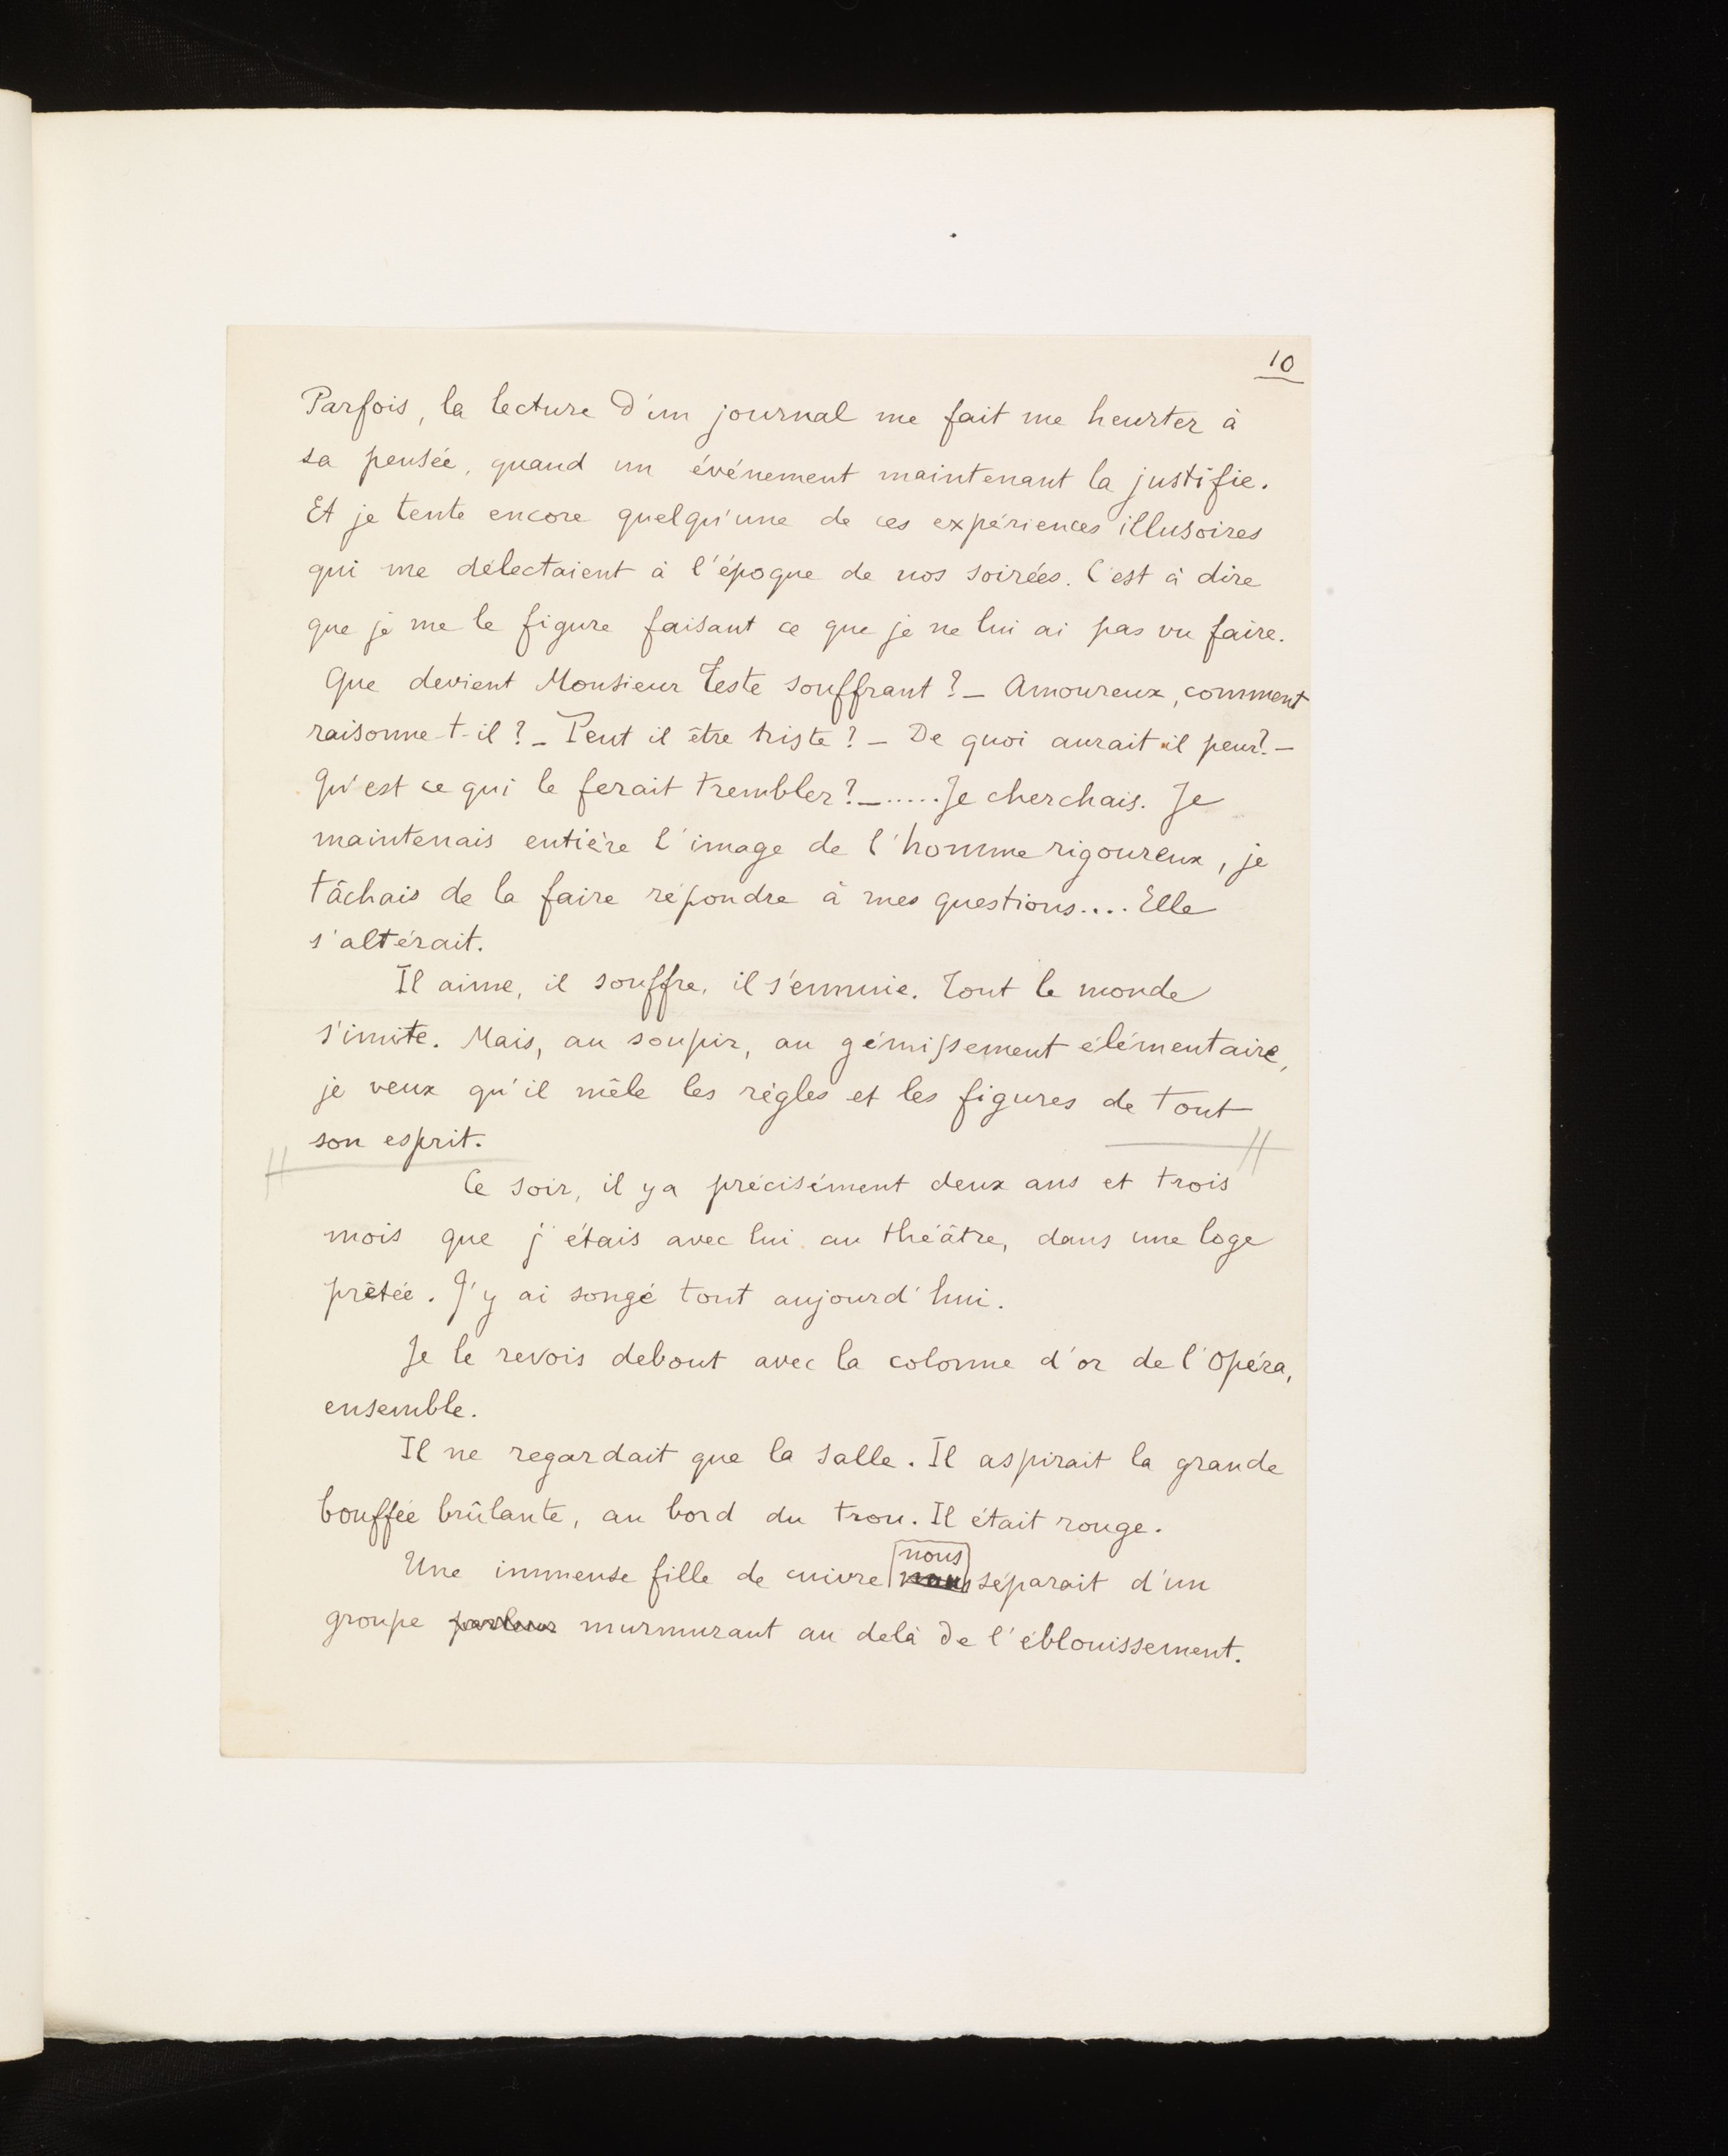 10
Parfois, la lecture d'un journal me fait me heurter à
sa pensée, quand un événement maintenant la justifie.
Et je tente encore quelqu'une de ces expériences illusoires
qui me délectaient à l'époque de nos soirées. C'est à dire
que je me le figure faisant ce que je ne lui ai pas vu faire.
Que devient Monsieur Teste souffrant ? — Amoureux, comment
raisonne-t-il ? — Peut il être triste ? — De quoi aurait-il peur ? —
Qu'est ce qui le ferait trembler ? — ..... Je cherchais. Je
maintenais entière l'image de l'homme rigoureux, je
tâchais de la faire répondre à mes questions.... Elle
s'altérait.
Il aime, il souffre, il s'ennuie. Tout le monde
s'imite. Mais, au soupir, au gémissement élémentaire,
je veux qu'il mêle les règles et les figures de tout
son esprit.
Ce soir, il y a précisément deux ans et trois
mois que j'étais avec lui au théâtre, dans une loge
prêtée. J'y ai songé tout aujourd'hui.
Je le revois debout avec la colonne d'or de l'Opéra,
ensemble.
Il ne regardait que la salle. Il aspirait la grande
bouffée brûlante, au bord du trou. Il était rouge.
nous
Une immense fille de cuivre nous séparait d'un
groupe parleur murmurant au delà de l'éblouissement.